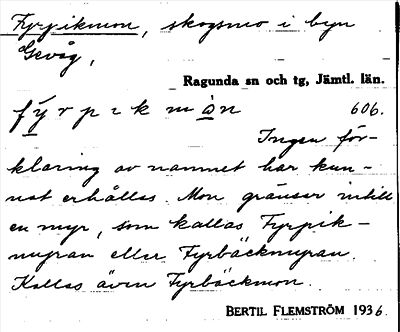 Fyrpikmon, skogsmo i byn
Gevåg,
Ragunda sn och tg, Jämtl. län.
fy̅rpɪkmo̅n 606.
Ingen för-
klaring av namnet har kun-
nat erhållas. Mon gränsar intill
en myr, som kallas Fyrpik-
myran eller Fyrbäckmyran.
Kallas även Fyrbäckmon.
BERTIL FLEMSTRÖM 1936.